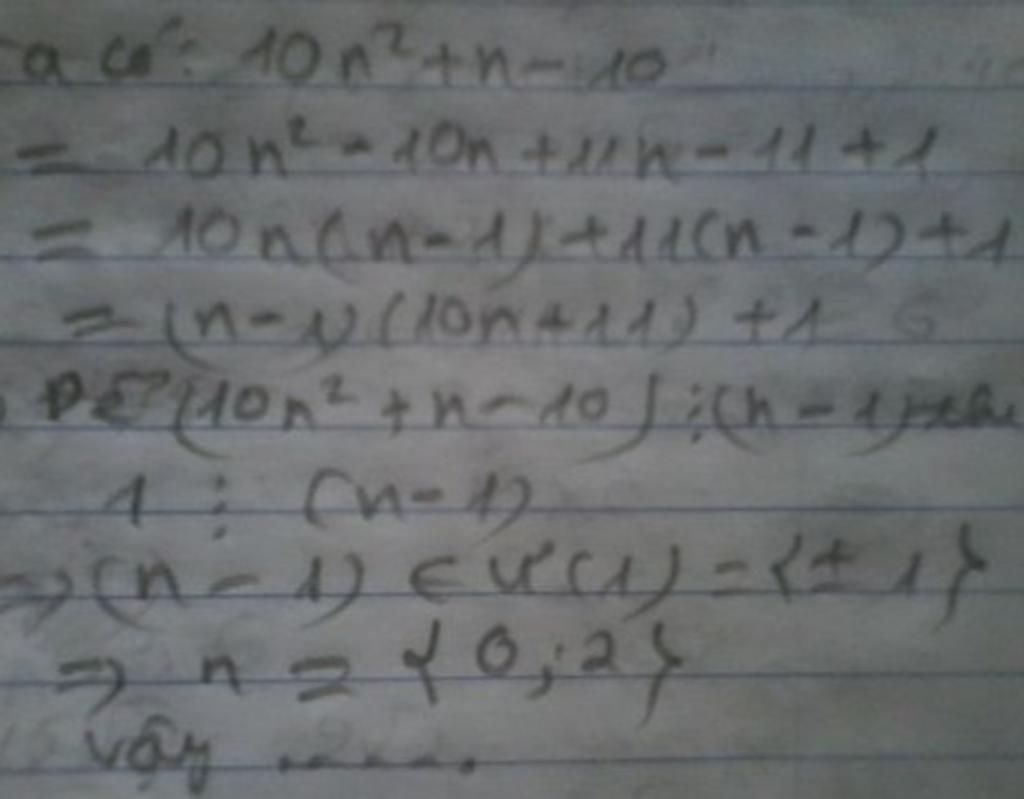 a có: 10n² + n - 10
= 10n² - 10n + 11n - 11 + 1
= 10n(n-1) + 11(n-1) + 1
= (n-1)(10n+11) + 1
Để (10n² + n - 10) ⋮ (n-1) thì
1 ⋮ (n-1)
⇒ (n-1) ∈ Ư(1) = {±1}
⇒ n = {0; 2}
vậy .....